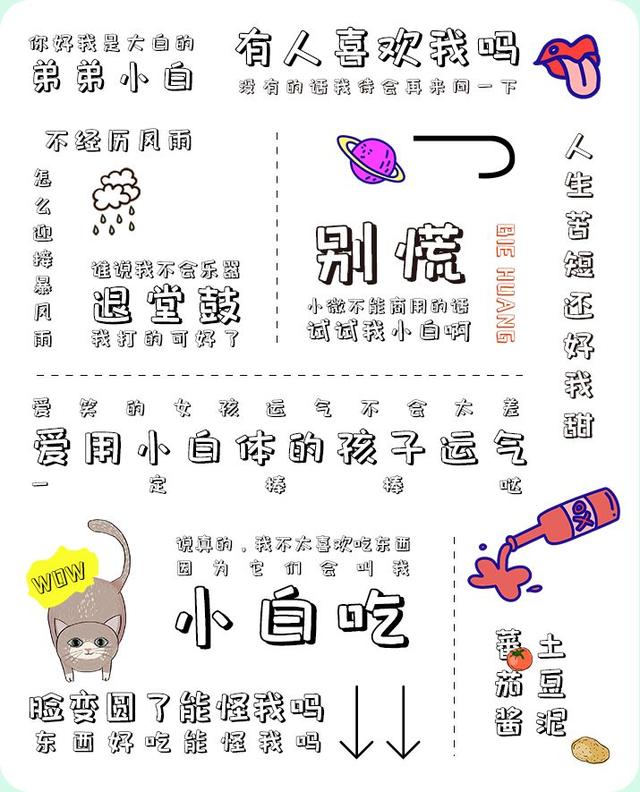 你好我是大白的
弟弟小白
有人喜欢我吗
没有的话我待会再来问一下
不经历风雨
怎么迎接暴风雨
谁说我不会乐器
退堂鼓
我打的可好了
别慌
BIE HUANG
小微不能商用的话
试试我小白啊
人生苦短还好我甜
爱笑的女孩运气不会太差
爱用小白体的孩子运气
一定棒棒哒
WOW
说真的，我不太喜欢吃东西
因为它们会叫我
小白吃
脸变圆了能怪我吗
东西好吃能怪我吗
XO
蕃茄酱
土豆泥